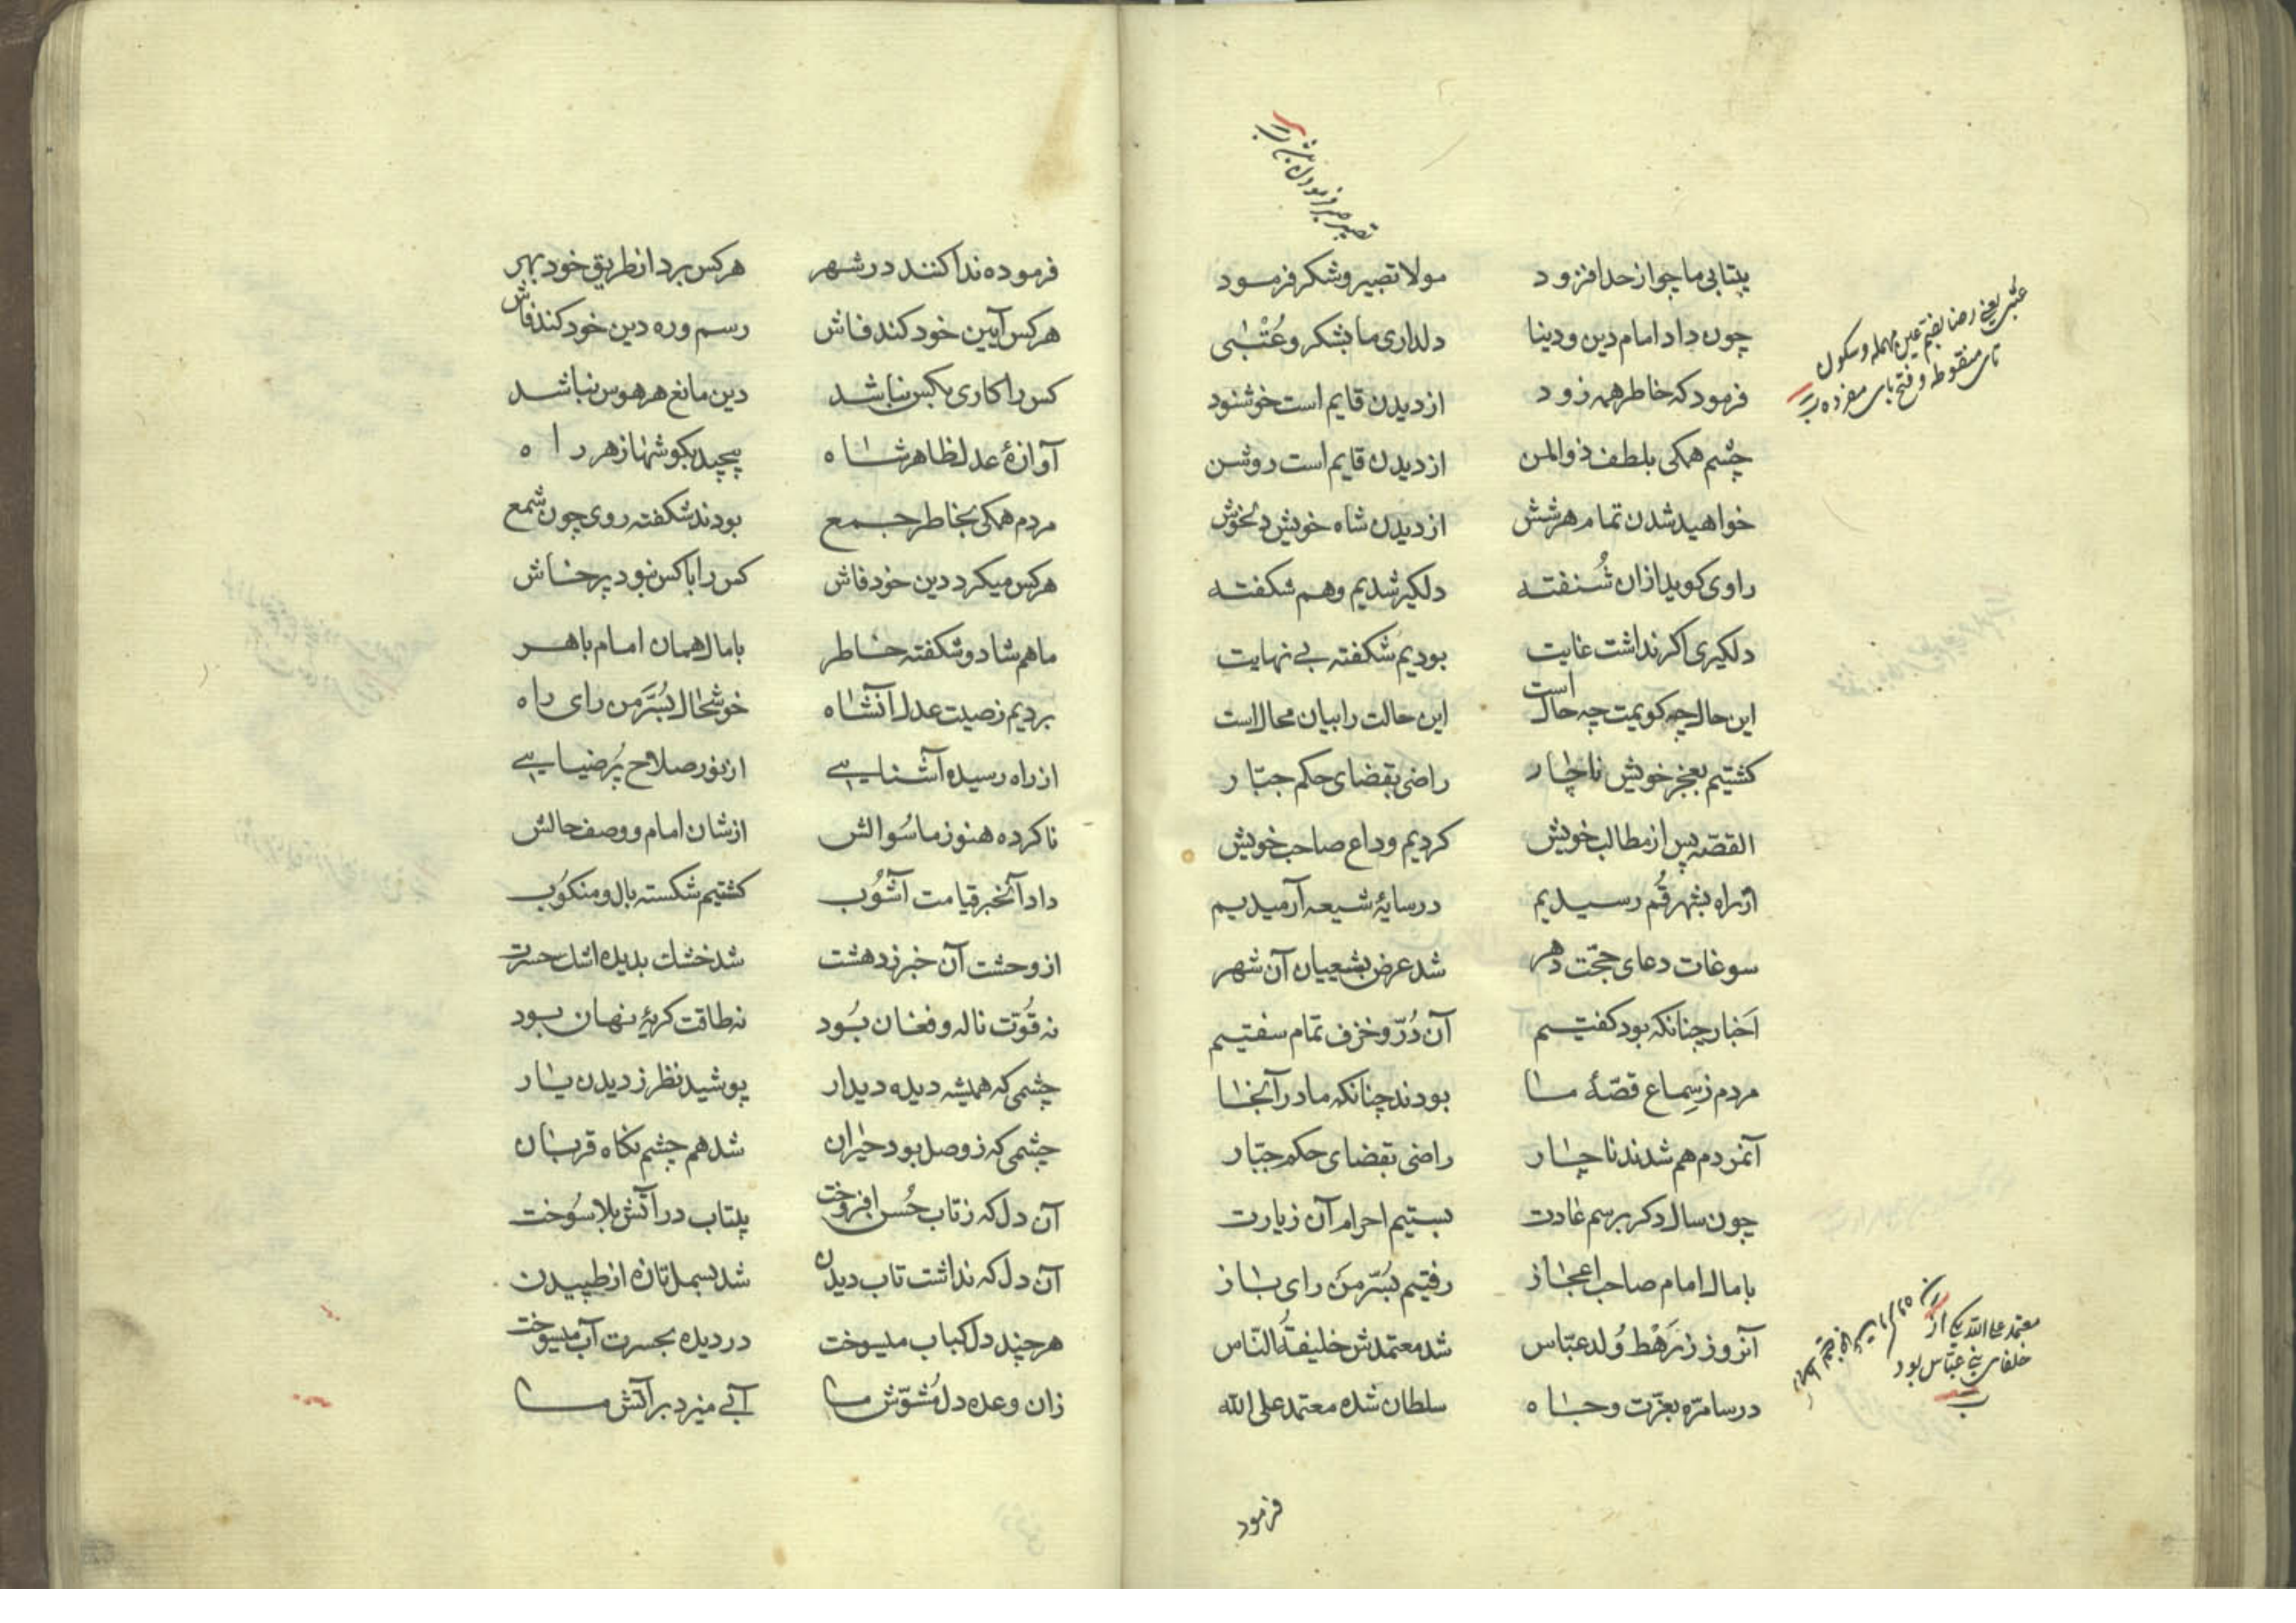 بیتابی ما چو از حد افزود مولا تصبیر و شکر فرمود
چون داد امام دین و دینا دلداری ما بشکر و عُتْبٰی
فرمود که خاطر همه زود از دیدن قایم است خوشنود
چشم همکی بلطف ذوالمن از دیدن قایم است روشن
خواهید شدن تمام هر شش از دیدن شاه خویش دلخوش
راوی کوید ازان شُنفته دلکیر شدیم و هم شکفته
دلکیری اکر نداشت غایت بودیم شکفته بی نهایت
این حال چه کویمت چه حال است این حالت را بیان محال است
کشتیم بعجز خویش ناچار راضی بقضای حکم جبّار
القصّه پس از مطالب خویش کردیم وداع صاحب خویش
از راه بشهر قُم رسیدیم در سایهٔ شیعه آرمیدیم
سوغات دعای حجّت دهر شد عرض بشیعیان آن شهر
اَخبار چنانکه بود کفتیم آن دُرّ و خزف تمام سفتیم
مردم ز سِماع قصّهٔ ما بودند چنانکه ما در آنجا
آنمردم هم شدند ناچار راضی بقضای حکم جبّار
چون سال دکر برسم عادت بستیم احرام آن زیارت
با مال امام صاحب اعجاز رفتیم بسُرّ من رای باز
آنروز ز رَهْط وُلد عبّاس شد معتمدش خلیفةُ النّاس
در سامرّه بعزّت و جاه سلطان شده معتمد علی الله
فرمود
تصبیر صبر فرمودن باشد
عتبی یعنی رضا بضم عین مهمله و سکون
تای منقوطه و فتح بای مفرده
معتمد علی الله یکی از
خلفای بنی عبّاس بود
فرموده ندا کنند در شهر هر کس برد از طریق خود بهر
هر کس آیین خود کند فاش رسم و ره دین خود کند فاش
کس را کاری بکس نباشد دین مانع هر هوس نباشد
آوازهٔ عدل ظاهر شاه پیچید بکوشها ز هر راه
مردم همکی بخاطر جمع بودند شکفته روی چون شمع
هر کس میکرد دین خود فاش کس را با کس نبود پرخاش
ما هم شاد و شکفته خاطر با مال همان امام باهر
بردیم ز صیت عدل آنشاه خوشحال بسُرّ من رای راه
از راه رسیده آشنایی از نور صلاح پُر ضیایی
ناکرده هنوز ما سُوالش از شان امام و وصف حالش
داد آنخبر قیامت آشوُب کشتیم شکسته بال و منکوُب
از وحشت آن خبر ز دهشت شد خشک بدیده اشک حسرت
نه قُوّت ناله و فغان بُود نه طاقت کریهٔ نهان بود
چشمی که همیشه دیده دیدار پوشید نظر ز دیدن یار
چشمی که ز وصل بود حیران شد هم چشم نکاه قربان
آن دل که ز تاب حُسن افروخت بیتاب در آتش بلا سُوخت
آن دل که نداشت تاب دیدن شد بسمل تازه از طپیدن
هر چند دل کباب میسوخت در دیده بحسرت آب میسوخت
زان وعده دل مُشوّش ما آبی میزد بر آتش ما